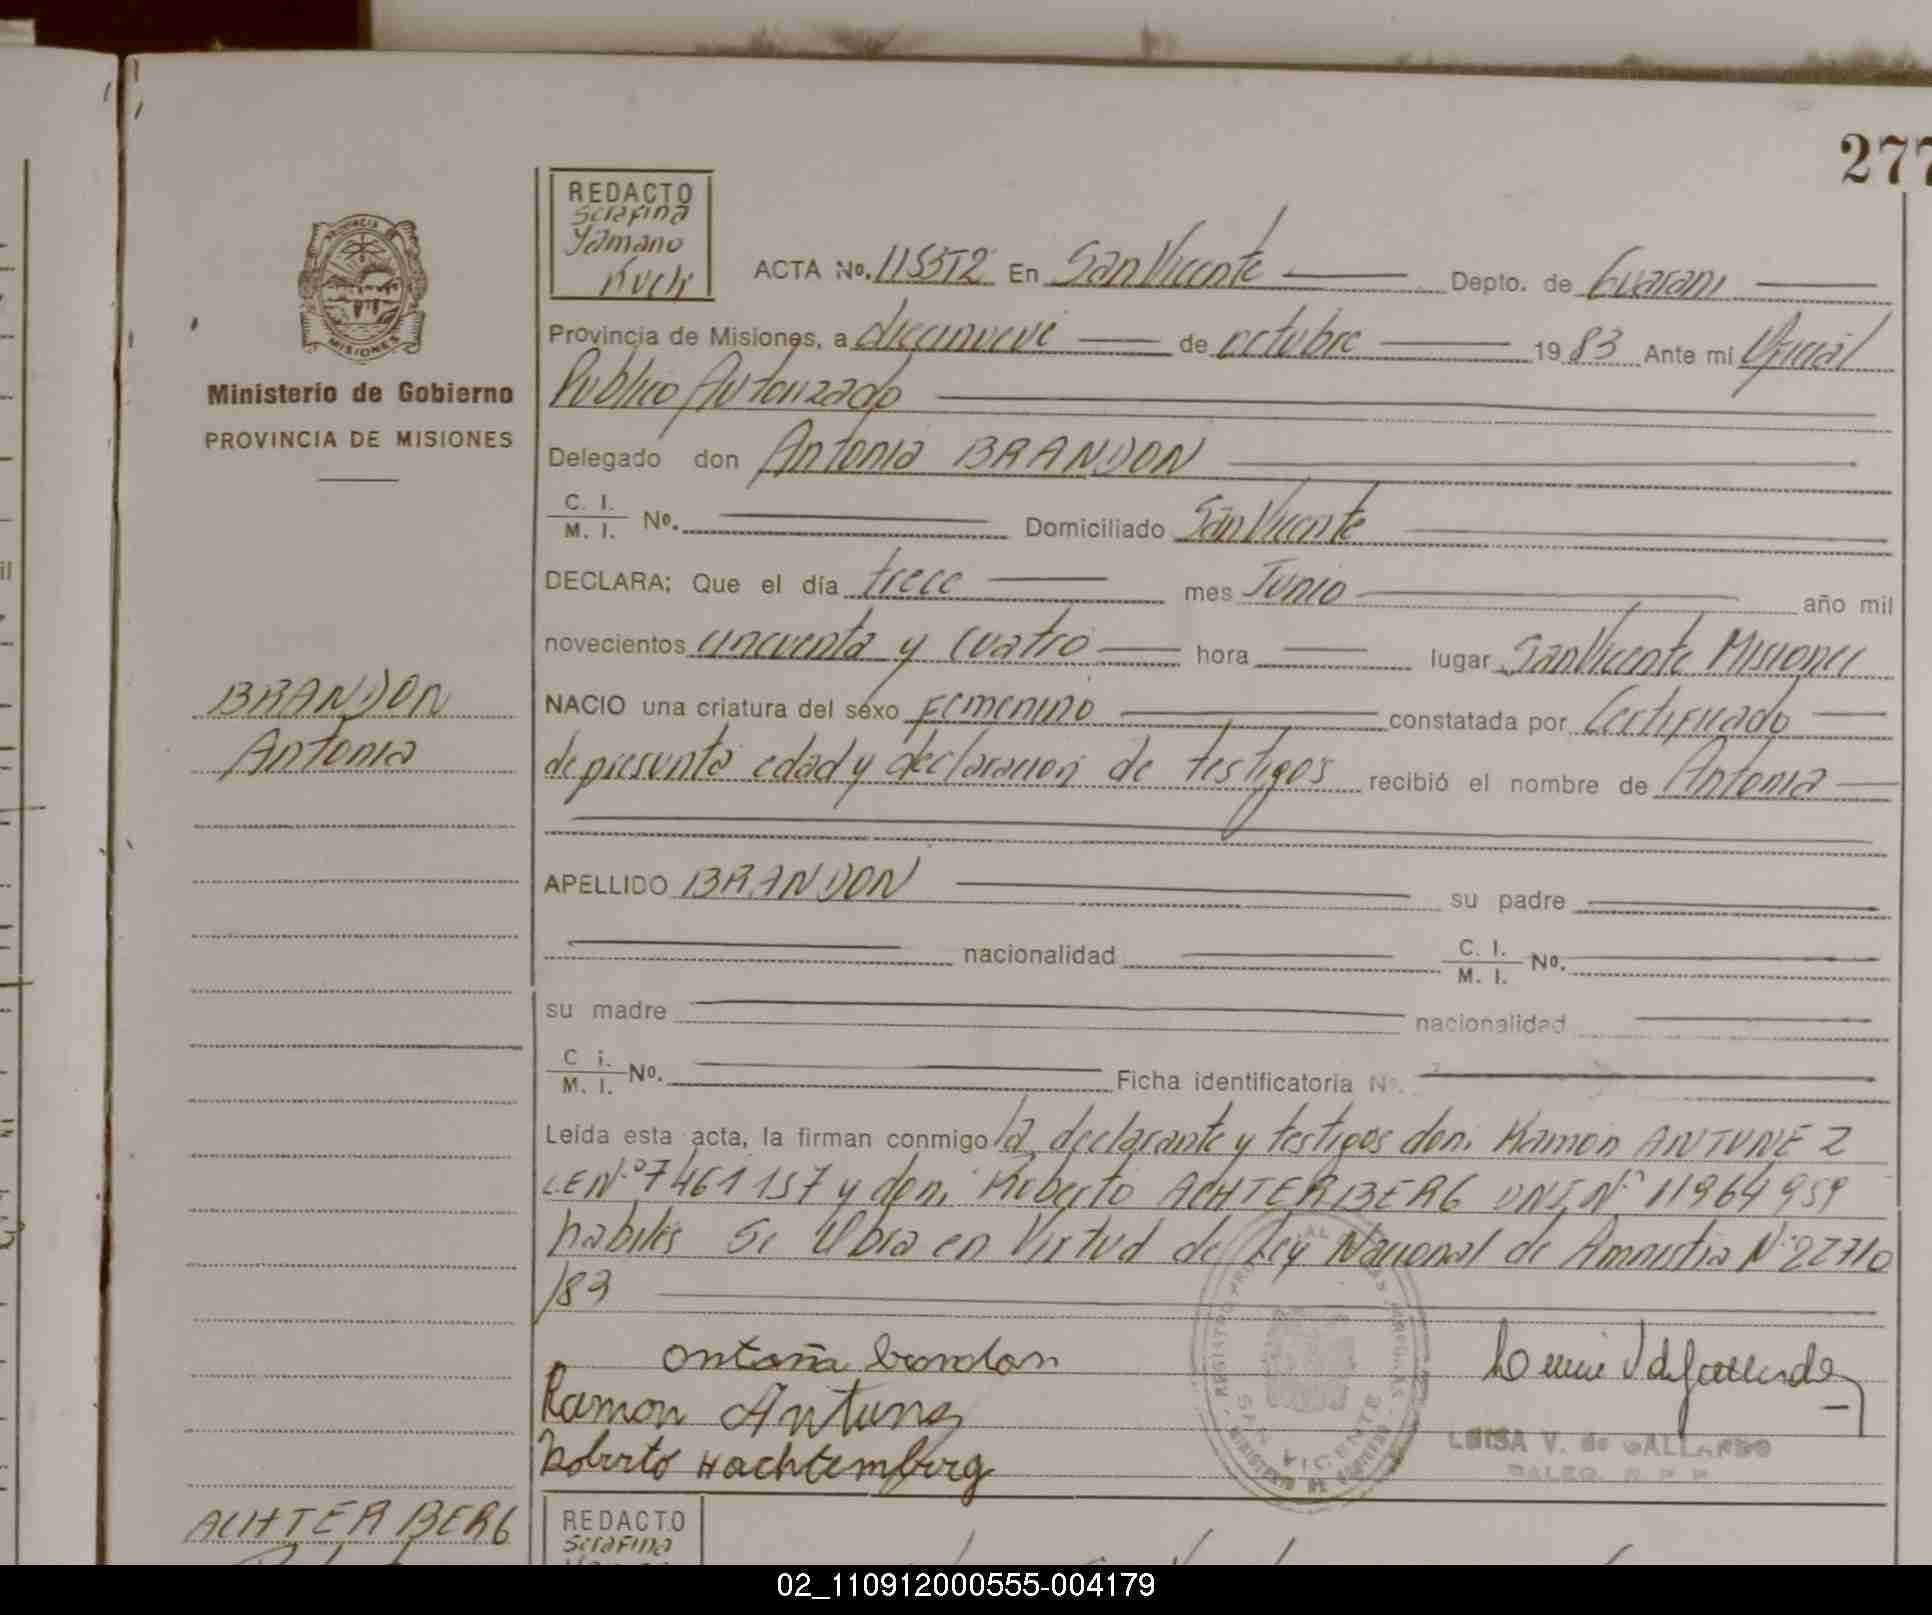 277
REDACTO
Serafina
Yamano
Kuch
ACTA No. 115372 En San Vicente Depto. de Guarani
Provincia de Misiones, a diecinueve de octubre 1983 Ante mi Oficial
Publico Autorizado
Ministerio de Gobierno
PROVINCIA DE MISIONES
MISIONES
Delegado don Antonia BRANDON
C. I. M. I. No. Domiciliado San Vicente
DECLARA; Que el día trece mes Junio año mil
novecientos cincuenta y cuatro hora lugar San Vicente Misiones
BRANDON
Antonia
NACIO una criatura del sexo Femenino constatada por Certificado
de presunta edad y declaracion de testigos recibió el nombre de Antonia
APELLIDO BRANDON su padre
nacionalidad C. I. M. I. No.
su madre nacionalidad
C i. M. I. No. Ficha identificatoria No.
Leída esta acta, la firman conmigo la declarante y testigos don: Ramon ANTUNEZ
L.E Nº 7461157 y don: Roberto ACHTERBERG DNI Nº 11964959
habiles Se labra en Virtud de Ley Nacional de Amnistia Nº 22710
/83
Antonia brandon
Ramon Antunez
Roberto Hachtemberg
SAN VICENTE
LUISA V. de GALLARDO
ACHTERBERG
REDACTO
Serafina
02_110912000555-004179